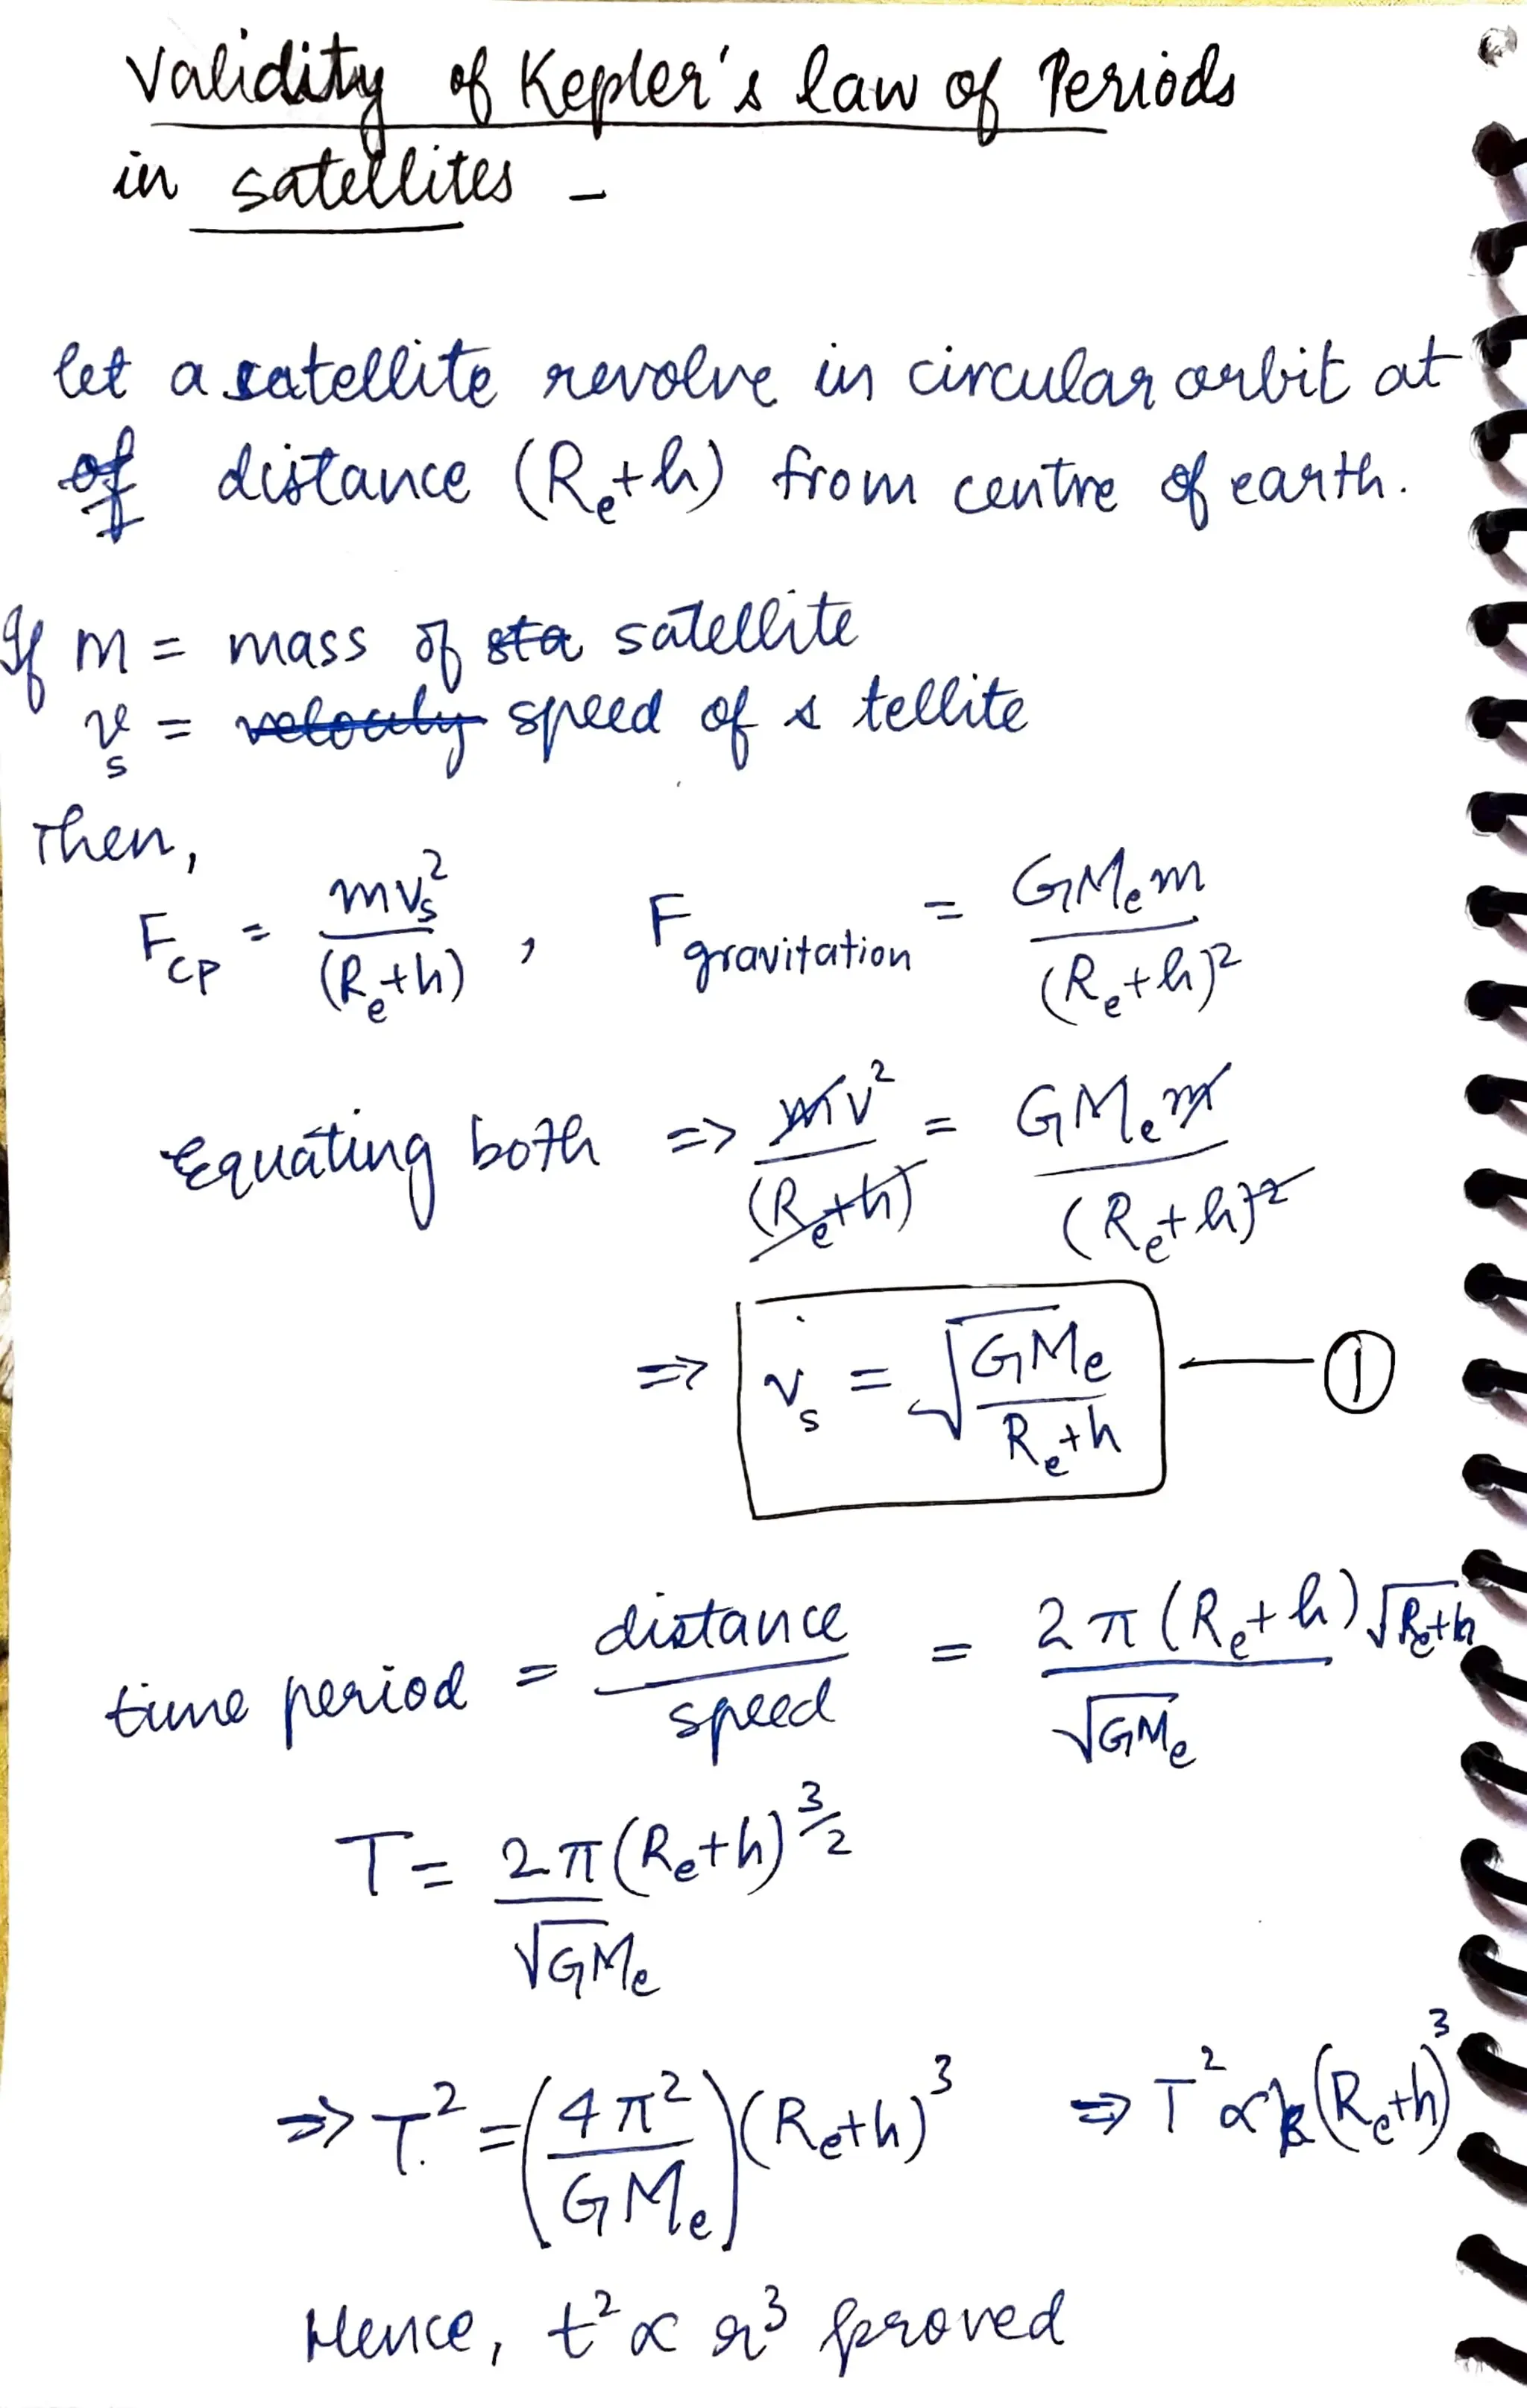 Validity of Kepler's law of Periods
in satellites -
let a satellite revolve in circular orbit at
of distance (Re+h) from centre of earth.
If m = mass of sta satellite
vs = velocity speed of s tellite
Then,
Fcp = mvs²/(Re+h) , Fgravitation = GMem/(Re+h)²
Equating both => mv²/(Re+h) = GMem/(Re+h)²
=> vs = √(GMe/Re+h) — ①
time period = distance/speed = 2π(Re+h)√Re+h/√GMe
T = 2π(Re+h)^3/2/√GMe
=> T² = (4π²/GMe)(Re+h)³ => T² ∝ (Re+h)³
Hence, t² ∝ r³ proved